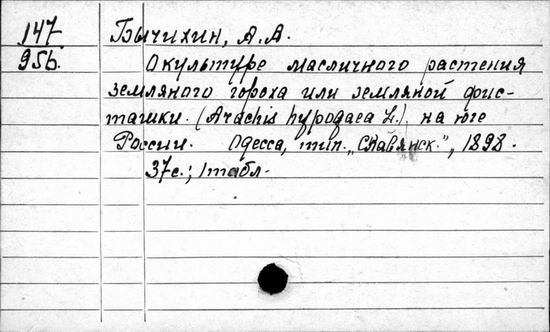 147
956.
Бычихин, А.А.
О культуре масличного растения
земляного гороха или земляной фис-
ташки. (Arachis hypogaea L.) на юге
России. Одесса, тип. „Славянск.", 1898.
37с.; 1 табл.